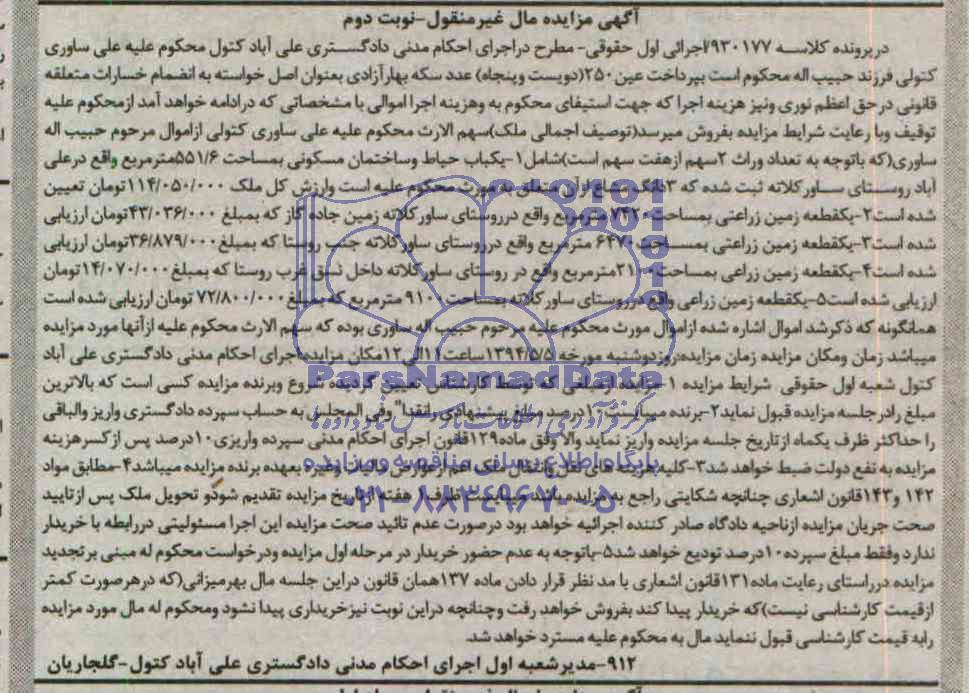 آگهی مزایده مال غیرمنقول-نوبت دوم
درپرونده کلاسه ۹۳۰۱۷۷/اجرائی اول حقوقی- مطرح دراجرای احکام مدنی دادگستری علی آباد کتول محکوم علیه علی ساوری
کتولی فرزند حبیب اله محکوم است بپرداخت عین۲۵۰(دویست وپنجاه) عدد سکه بهارآزادی بعنوان اصل خواسته به انضمام خسارات متعلقه
قانونی درحق اعظم نوری ونیز هزینه اجرا که جهت استیفای محکوم به وهزینه اجرا اموالی با مشخصاتی که درادامه خواهد آمد ازمحکوم علیه
توقیف وبا رعایت شرایط مزایده بفروش میرسد(توصیف اجمالی ملک)سهم الارث محکوم علیه علی ساوری کتولی ازاموال مرحوم حبیب اله
ساوری(که باتوجه به تعداد وراث ۲سهم ازهفت سهم است)شامل۱-یکباب حیاط وساختمان مسکونی بمساحت ۵۵۱/۶مترمربع واقع درعلی
آباد روستای ساورکلاته ثبت شده که ۳دانگ مشاع ازآن متعلق به مورث محکوم علیه است وارزش کل ملک ۱۱۴/۰۵۰/۰۰۰تومان تعیین
شده است۲-یکقطعه زمین زراعتی بمساحت۷۴۲۰ مترمربع واقع درروستای ساورکلاته زمین جاده گاز که بمبلغ ۴۳/۰۳۶/۰۰۰تومان ارزیابی
شده است۳-یکقطعه زمین زراعتی بمساحت۶۴۷۰ مترمربع واقع درروستای ساورکلاته جنب روستا که بمبلغ۳۶/۸۷۹/۰۰۰تومان ارزیابی
شده است۴-یکقطعه زمین زراعی بمساحت۲۱۰۰مترمربع واقع در روستای ساورکلاته داخل نسق غرب روستا که بمبلغ۱۴/۰۷۰/۰۰۰تومان
ارزیابی شده است۵-یکقطعه زمین زراعی واقع درروستای ساورکلاته بمساحت۹۱۰۰ مترمربع که بمبلغ۷۲/۸۰۰/۰۰۰ تومان ارزیابی شده است
همانگونه که ذکرشد اموال اشاره شده ازاموال مورث محکوم علیه مرحوم حبیب اله ساوری بوده که سهم الارث محکوم علیه ازآنها مورد مزایده
میباشد زمان ومکان مزایده زمان مزایده:روزدوشنبه مورخه ۱۳۹۴/۵/۵ساعت۱۱الی۱۲مکان مزایده اجرای احکام مدنی دادگستری علی آباد
کتول شعبه اول حقوقی شرایط مزایده ۱-مزایده ازمبلغی که توسط کارشناس تعیین گردیده شروع وبرنده مزایده کسی است که بالاترین
مبلغ رادرجلسه مزایده قبول نماید۲-برنده میبایست۱۰درصد مبلغ پیشنهادی رانقدا" وفی المجلس به حساب سپرده دادگستری واریز والباقی
را حداکثر ظرف یکماه ازتاریخ جلسه مزایده واریز نماید والا وفق ماده۱۲۹قانون اجرای احکام مدنی سپرده واریزی۱۰درصد پس ازکسرهزینه
مزایده به نفع دولت ضبط خواهد شد۳-کلیه هزینه های نقل وانتقال ملک اعم ازعوارض مالیات وغیره بعهده برنده مزایده میباشد۴-مطابق مواد
۱۴۲ و۱۴۳قانون اشعاری چنانچه شکایتی راجع به مزایده باشد میبایست ظرف۱ هفته ازتاریخ مزایده تقدیم شودو تحویل ملک پس ازتایید
صحت جریان مزایده ازناحیه دادگاه صادر کننده اجرائیه خواهد بود درصورت عدم تائید صحت مزایده این اجرا مسئولیتی دررابطه با خریدار
ندارد وفقط مبلغ سپرده۱۰درصد تودیع خواهد شد۵-باتوجه به عدم حضور خریدار در مرحله اول مزایده ودرخواست محکوم له مبنی برتجدید
مزایده درراستای رعایت ماده۱۳۱قانون اشعاری با مد نظر قرار دادن ماده ۱۳۷همان قانون دراین جلسه مال بهرمیزانی(که درهرصورت کمتر
ازقیمت کارشناسی نیست)که خریدار پیدا کند بفروش خواهد رفت وچنانچه دراین نوبت نیزخریداری پیدا نشود ومحکوم له مال مورد مزایده
رابه قیمت کارشناسی قبول ننماید مال به محکوم علیه مسترد خواهد شد.
۹۱۲-مدیرشعبه اول اجرای احکام مدنی دادگستری علی آباد کتول-گلجاریان
ParsNamadData
پایگاه اطلاع رسانی مناقصه و مزایده
۰۲۱-۸۸۳۴۹۶۷۰-۵